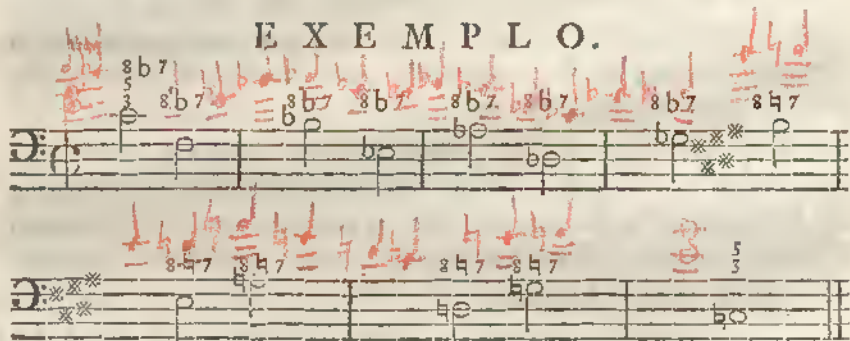 EXEMPLO.
8 b 7
5
3 8 b 7 8 b 7 8 b 7 8 b 7 8 b 7 8 b 7 8 ♮ 7
8 ♮ 7 8 ♮ 7 8 ♮ 7 8 ♮ 7 5
3